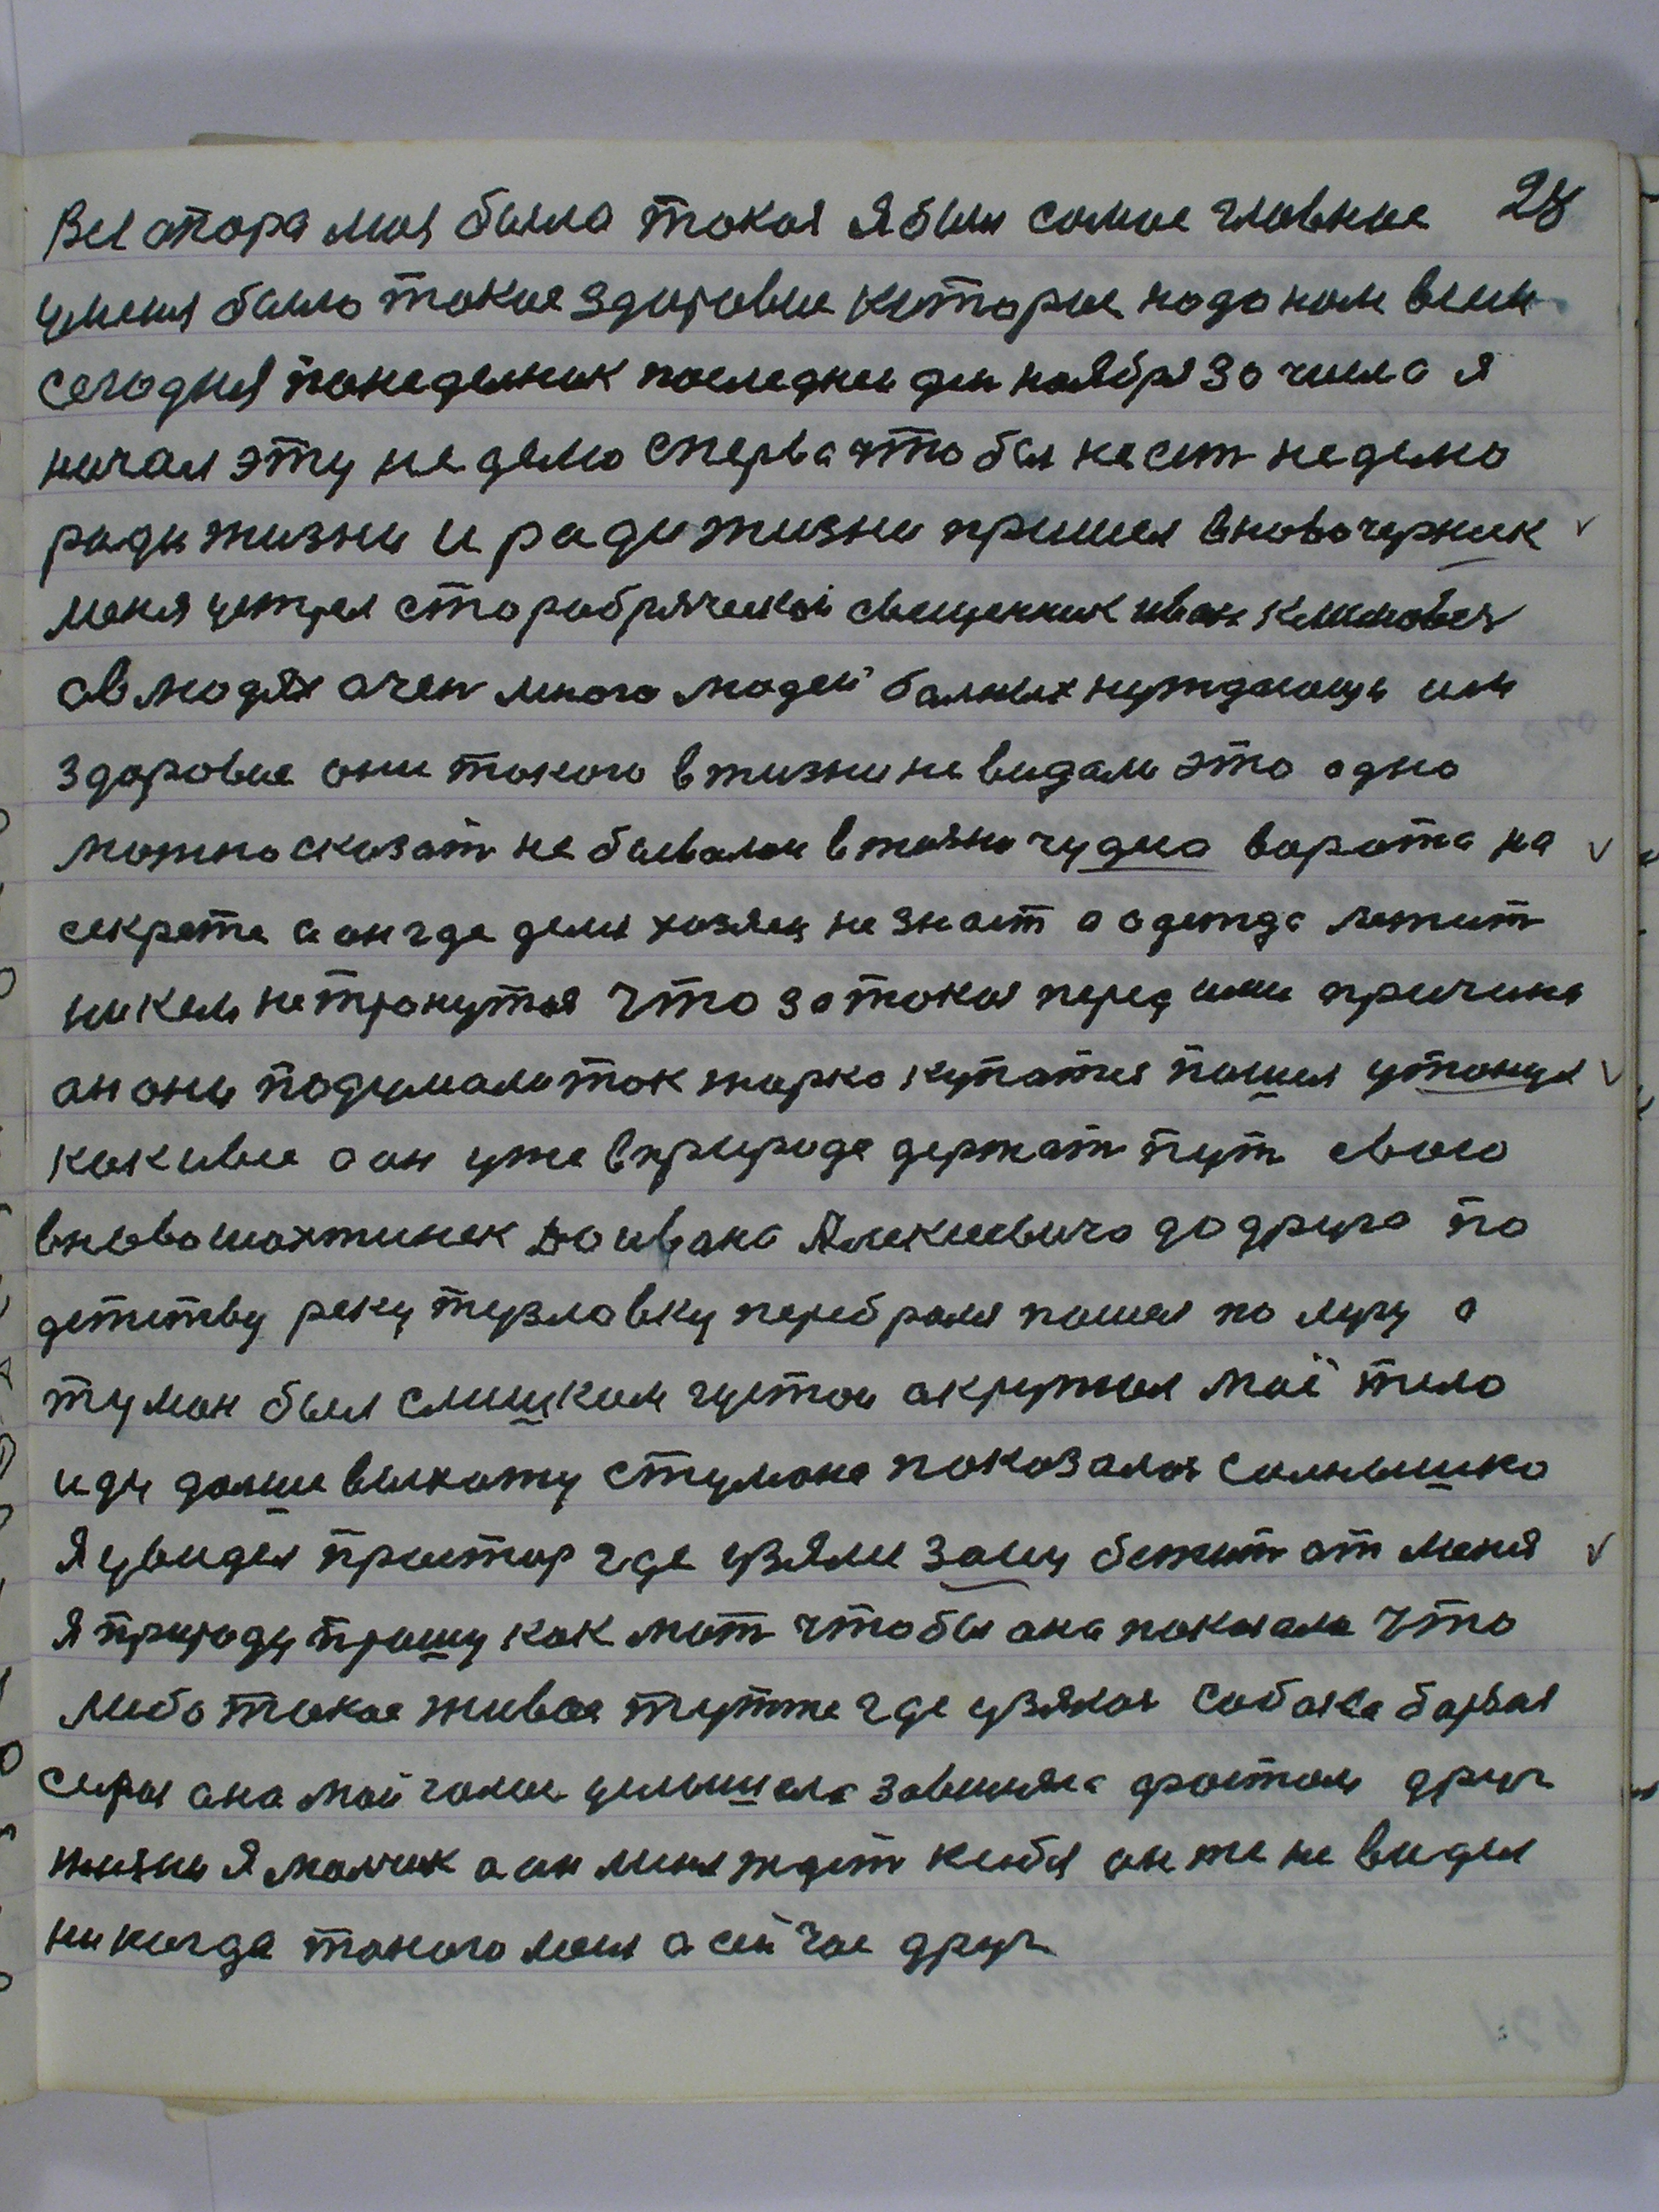 28
Вся опора моя была такая я был самое главное
уменя было такое здоровие которое надо нам всем
сегодня понеделник последнеи ден ноября 30 числа я
начал эту неделю сперва чтобы несет неделю
ради жизни и ради жизни пришел вновочеркаск
меня устрел старабряческой священник иван климович
овлюдях очен много людей болных нуждающи им
здоровие они такого вжизни не видали это одно
можно сказат не бывалои вжизни чудно ворота на
секрете а он где делся хозяен не знает а одежда лежит
никем нетронутая что за такая перед ими причина
ан они подумали так жарко купатся пошел утонул
как и все а он уже вприроде держат пут свого
вновошахтинск до ивана Алексеевича до друга по
детству реку тузловку перебрался пошел по лугу а
туман был слишком густои окружал маё тело
иду далше выхожу стумана показалос солнышко
я увидел простор где узялис заиц бежит от меня
я природу прошу как мат чтобы ана показала что
либо такое живое тутже где узялас собака борзая
серая ана мой голос услышала завиляла фостом друг
жизни я молчик а он меня ждет ксебя он же не видел
никогда такого меня а сейчас друг